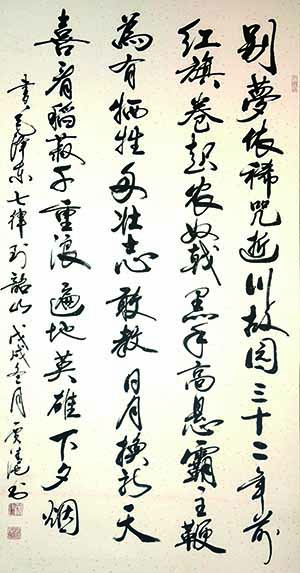 别夢依稀咒逝川故园三十二年前
红旗卷起农奴戟黑手高悬霸主鞭
為有牺牲多壮志敢教日月换新天
喜看稻菽千重浪遍地英雄下夕烟
书毛泽东七律到韶山戊戌冬月书